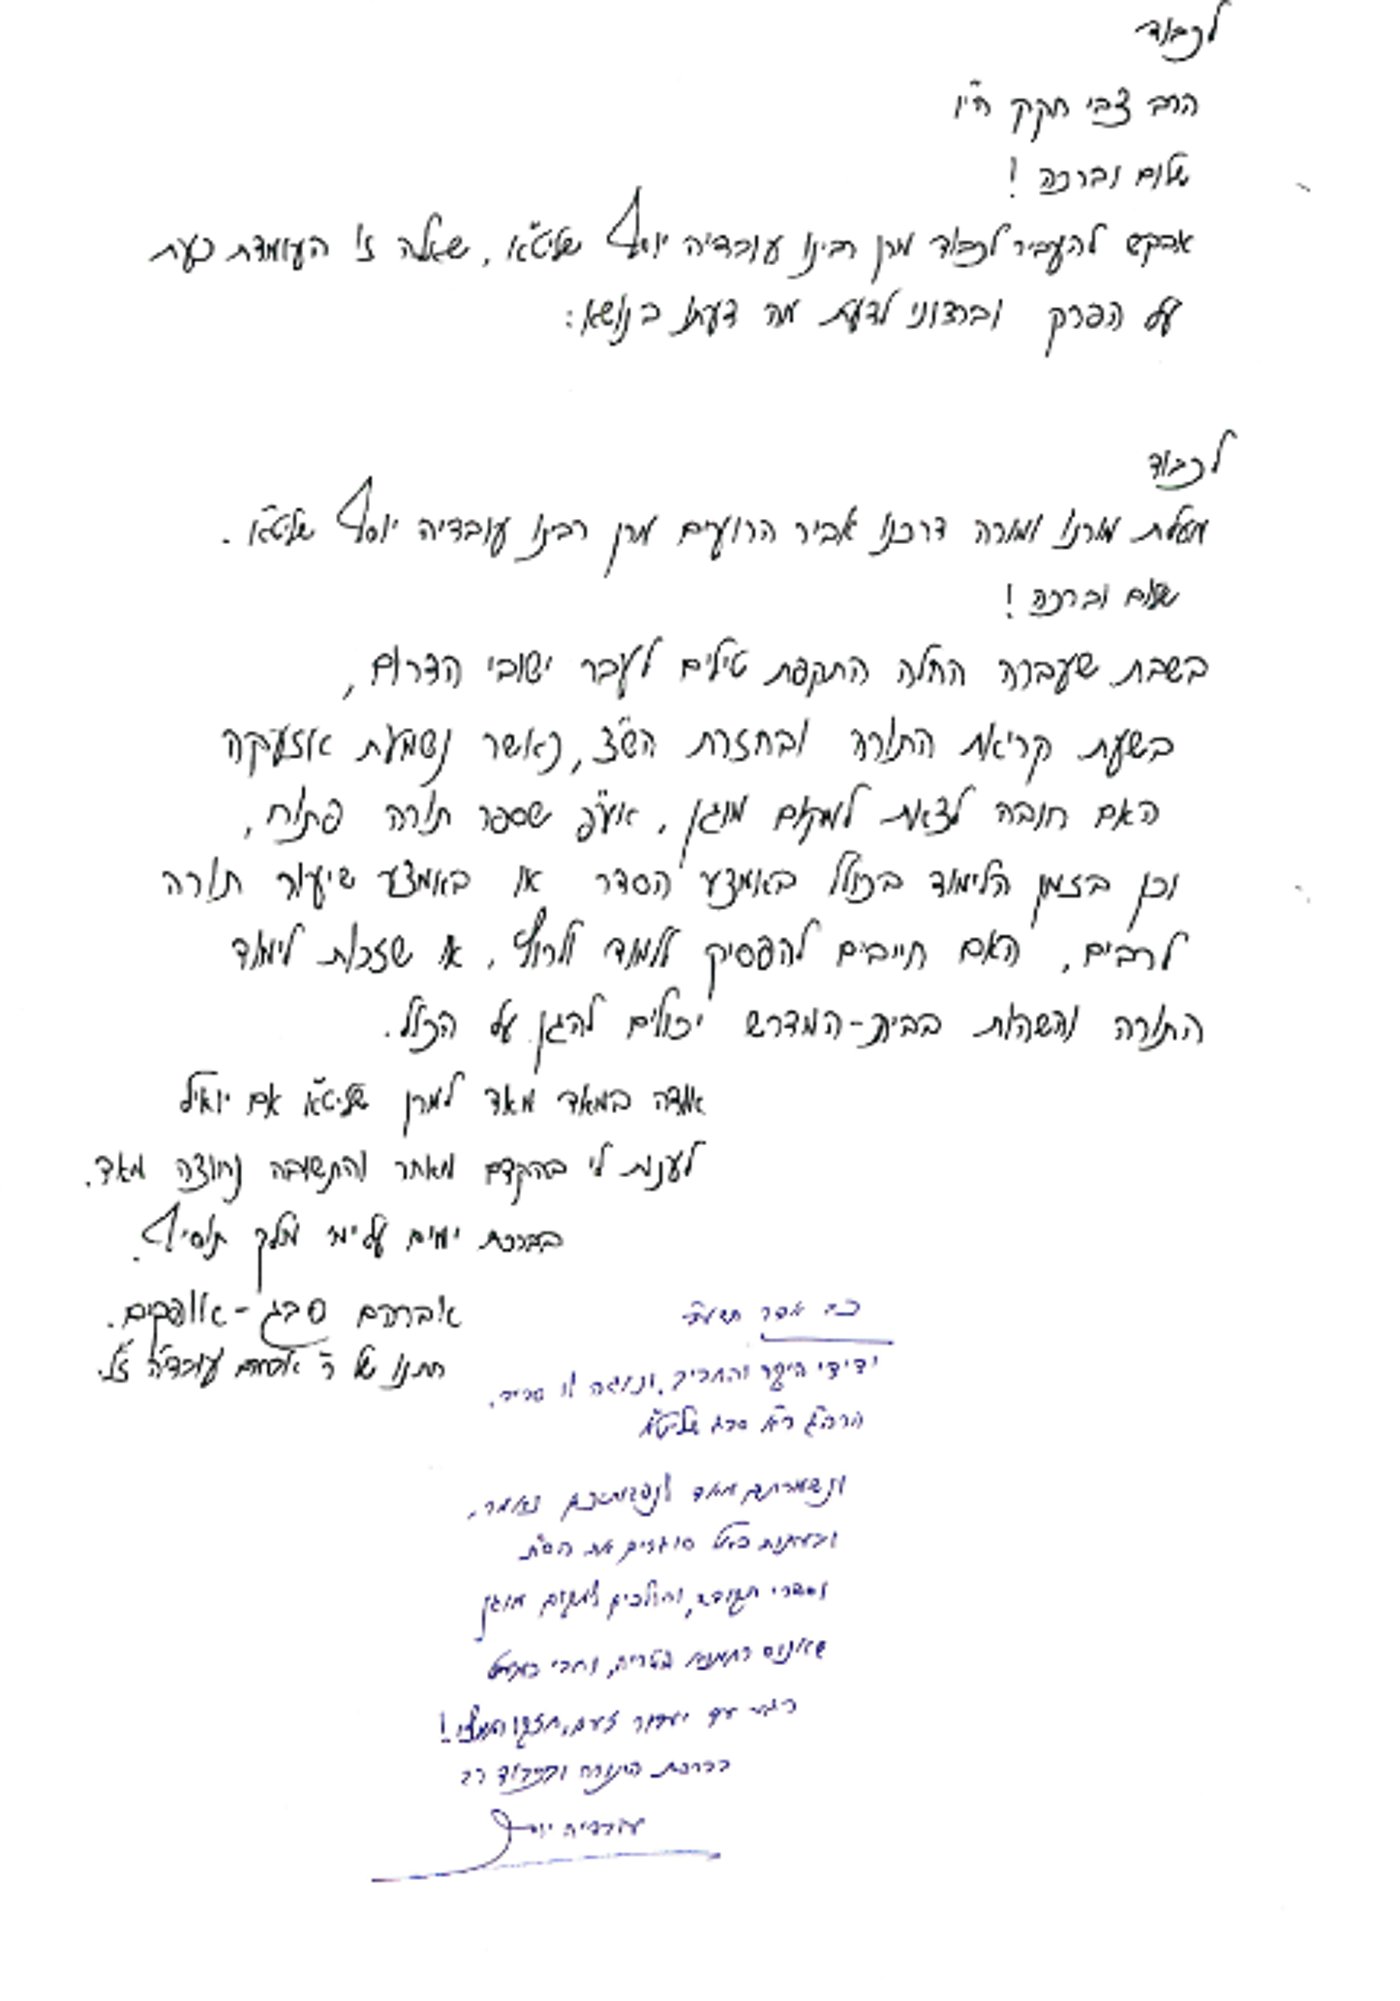 לכבוד
הרב צבי חקק הי"ו
שלום וברכה !
אבקש להעביר לכבוד מרן רבינו עובדיה יוסף שליט"א, שאלה זו העומדת כעת
על הפרק וברצוני לדעת מה דעתו בנושא:
לכבוד
מעלת מורנו ומורה דרכנו אביר הרועים מרן רבינו עובדיה יוסף שליט"א.
שלום וברכה !
בשבת שעברה החלה התקפת טילים לעבר ישובי הדרום,
בשעת קריאת התורה ובחזרת הש"צ, כאשר נשמעת אזעקה
האם חובה לצאת למקום מוגן, אע"פ שספר תורה פתוח,
וכן בזמן הלימוד בכולל באמצע הסדר או באמצע שיעור תורה
לרבים, האם חייבים להפסיק ללמוד ולרוץ, או שזכות לימוד
התורה והשהות בבית-המדרש יכולים להגן על הכלל.
אודה במאד מאד למרן שליט"א אם יואיל
לענות לי בהקדם מאחר והתשובה נחוצה מאד.
בברכת ימים על ימי מלך תוסיף.
אברהם סבג - אופקים.
חתנו של ר' עובדיה ז"ל.
אדר
ידידי היקר והחביב, ונוגה לו סביב,
הרה"ג ר"א סבג שליט"א
ונשמרתם מאד לנפשותיכם נאמר,
ובעתות כאל סוגרים את הס"ת
וספרי הקודש, והולכים למקום מוגן
רגע עד יעבור זעם, חזקו ואמצו !
בברכת התורה ובכבוד רב
עובדיה יוסף